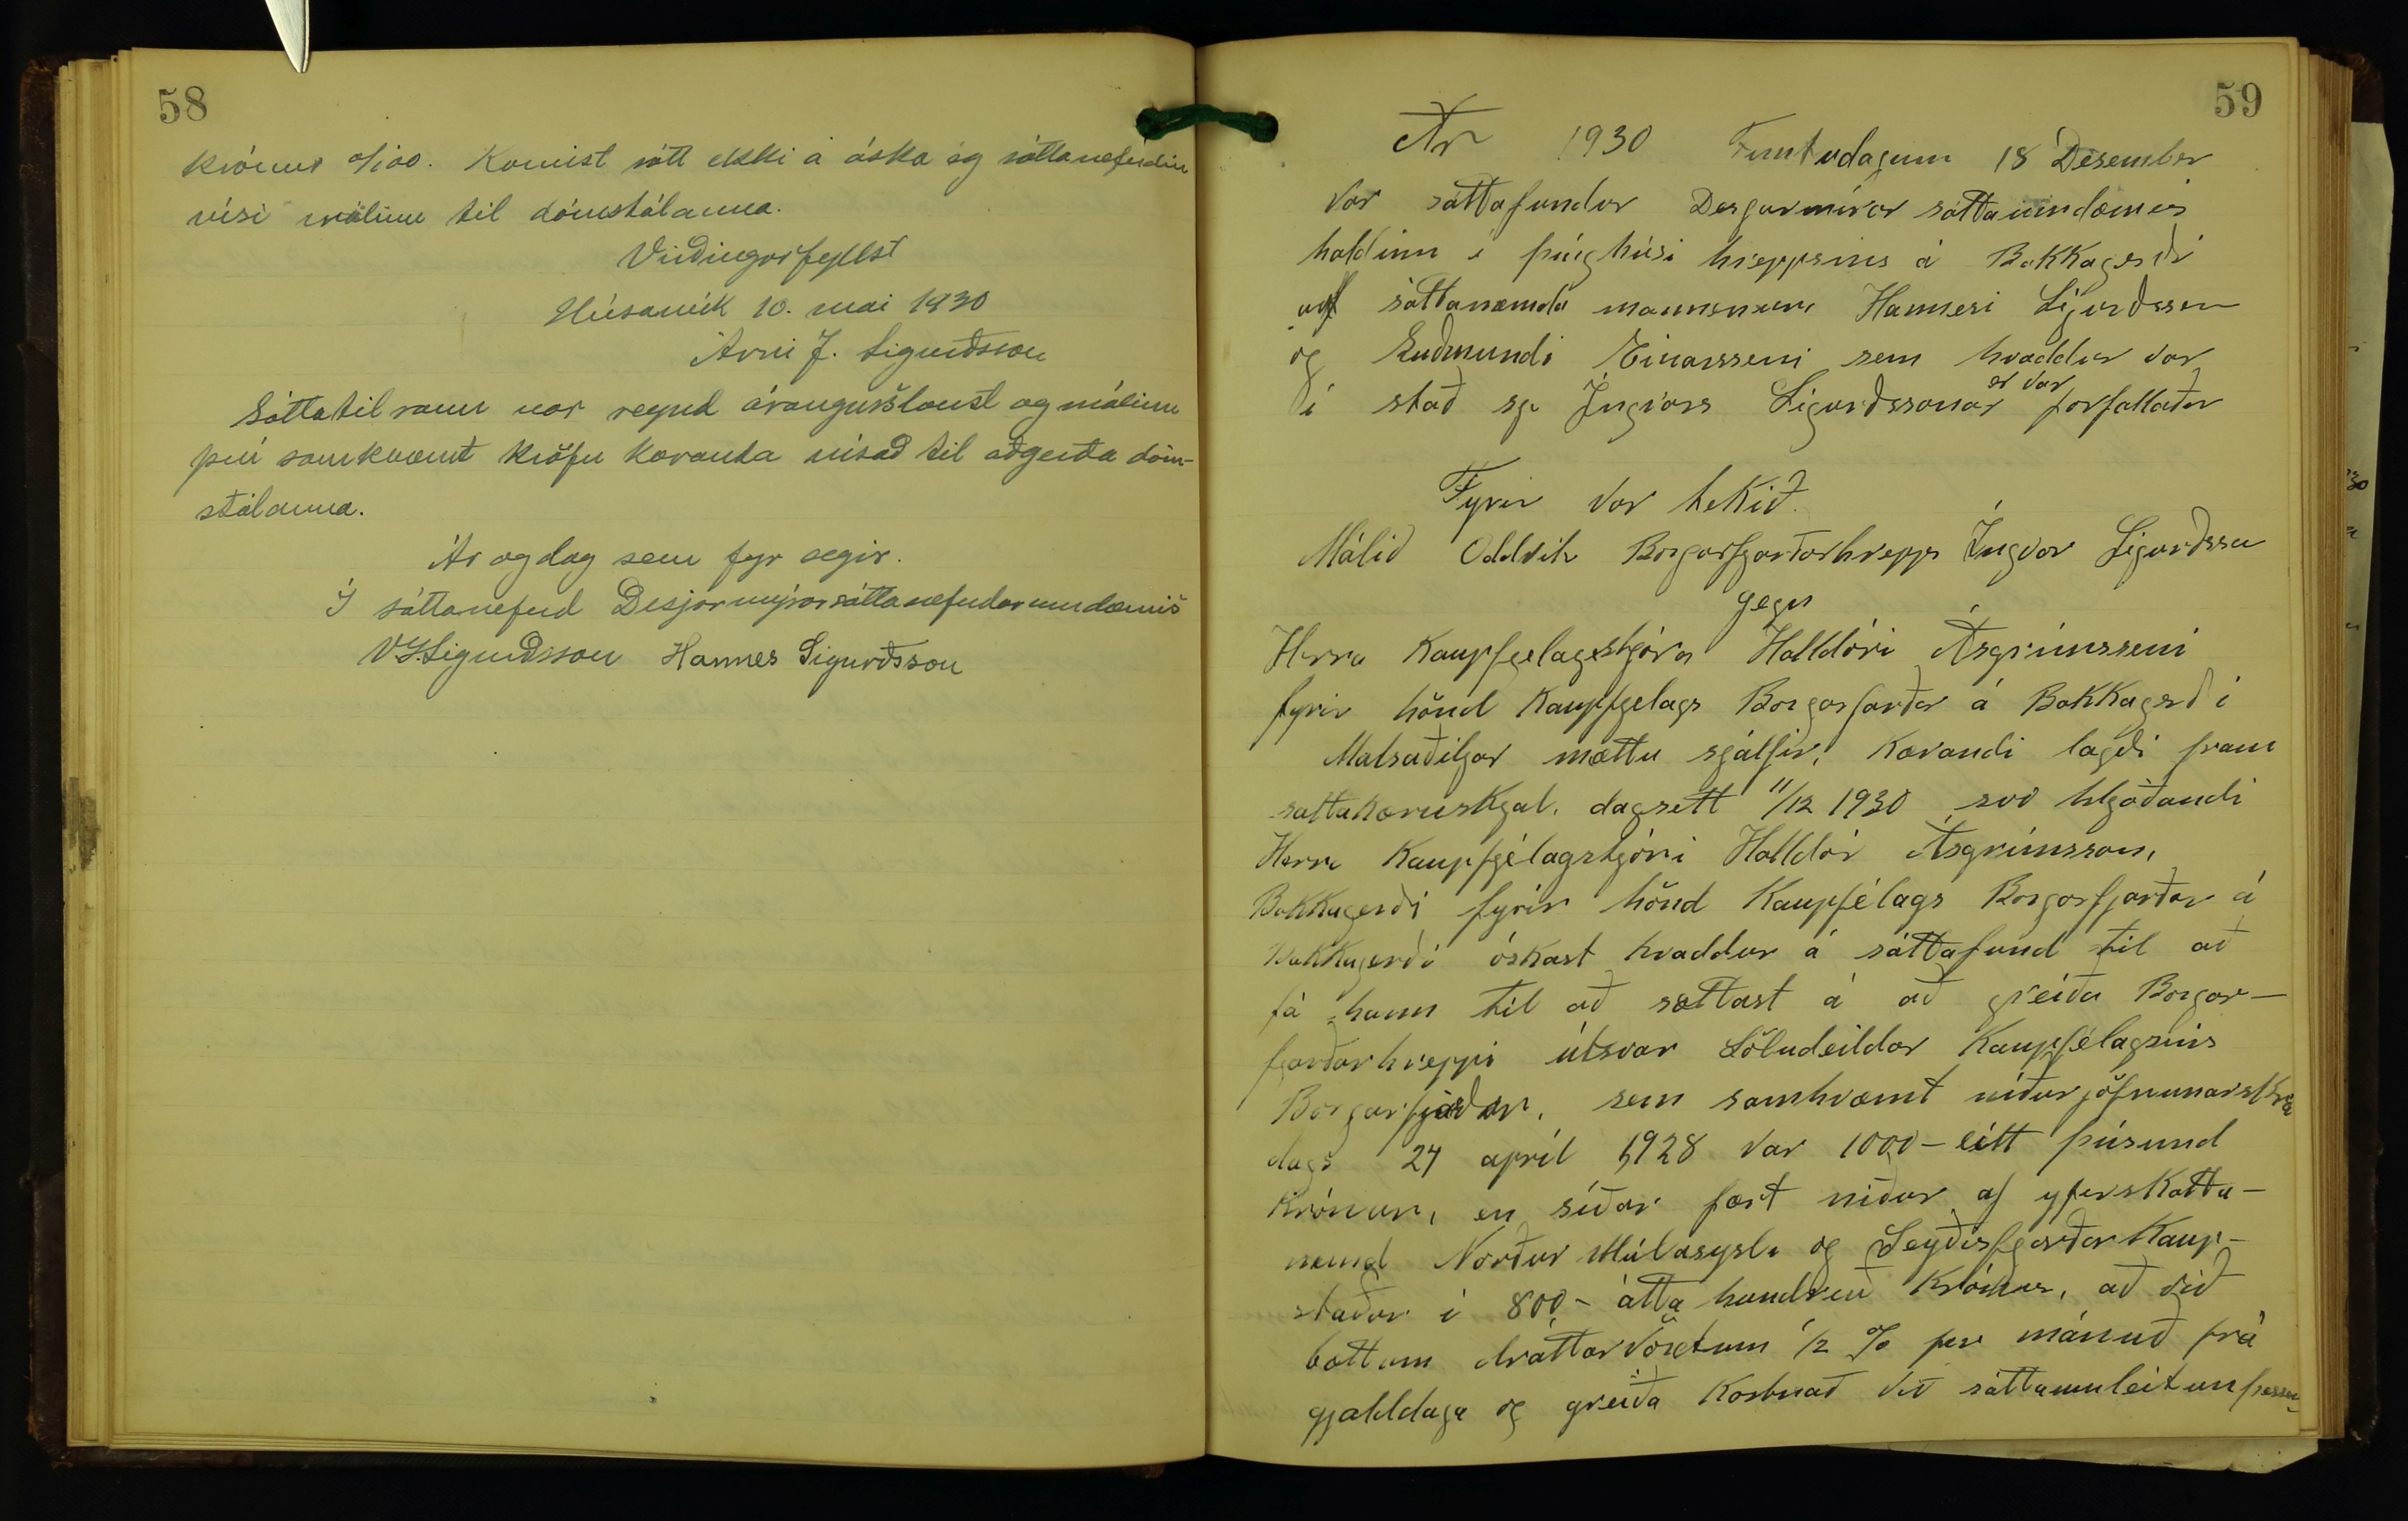 58
krónur 0/100. Komist sátt ekki á óska ég sáttanefndin
vísi málinu til dómstólanna.
Virðingarfyllst
Húsavík 10. maí 1930
Árni J. Sigurðsson
Sáttatilraun var reynd árangurslaust og málinu
því samkvæmt kröfu kæranda vísað til aðgerða dóm-
stólanna.
Ár og dag sem fyr segir.
Í sáttanefnd Desjarmýrarsáttanefndarumdæmis
VS. Sigurðsson Hannes Sigurðsson
59
Ár 1930 Fimtudaginn 18 Desember
var sáttafundur Desjarmírar sáttaumdæmis
haldinn í þinghúsi hreppsins á Bakkagerði
af sáttanemda mönnunum Hannesi Sigurðssyn
og Guðmundi Einarsseni sem kvaddur var
í stað sr. Ingvars Sigurðssonar er var forfallaður
Fyrir var tekið.
Málið Oddviti Borgarfjarðarhrepps Ingvar Sigurðsson
gegn
Herra Kaupfjelagsstjóra Halldóri Ásgrímsseni
fyrir hönd Kaupfjelags Borgarfjarðar á Bakkagerði
Malsaðiljar mættu sjálfir, Kærandi lagði fram
sattakæruskjal, dagsett 11/12 1930, svo hljóðandi
Herra Kaupfjélagstjóri Halldór Ásgrímsson,
Bakkagerði fyrir hönd Kaupfélags Borgarfjarðar á
Bakkagerði óskast kvaddur á sáttafund til að
fá hann til að sættast á að greiða Borgar-
fjarðarhreppi útsvar Söludeildar Kaupfélagsins
Borgarfjarðar, sem samkvæmt niðurjöfnunarskrá
dags 24 apríl 1928 var 1000- eitt þúsund
Krónur, en síðar fært niður af yferskatta-
nemd Norður Múlasyslu og Seyðisfjarðar Kaup-
staðar í 800,- átta hundruð Krónur, að við
bættum dráttarvöxtum 1/2 % per mánuð frá
gjalddaga og greiða Kostnað við sáttaumleitun þessa-